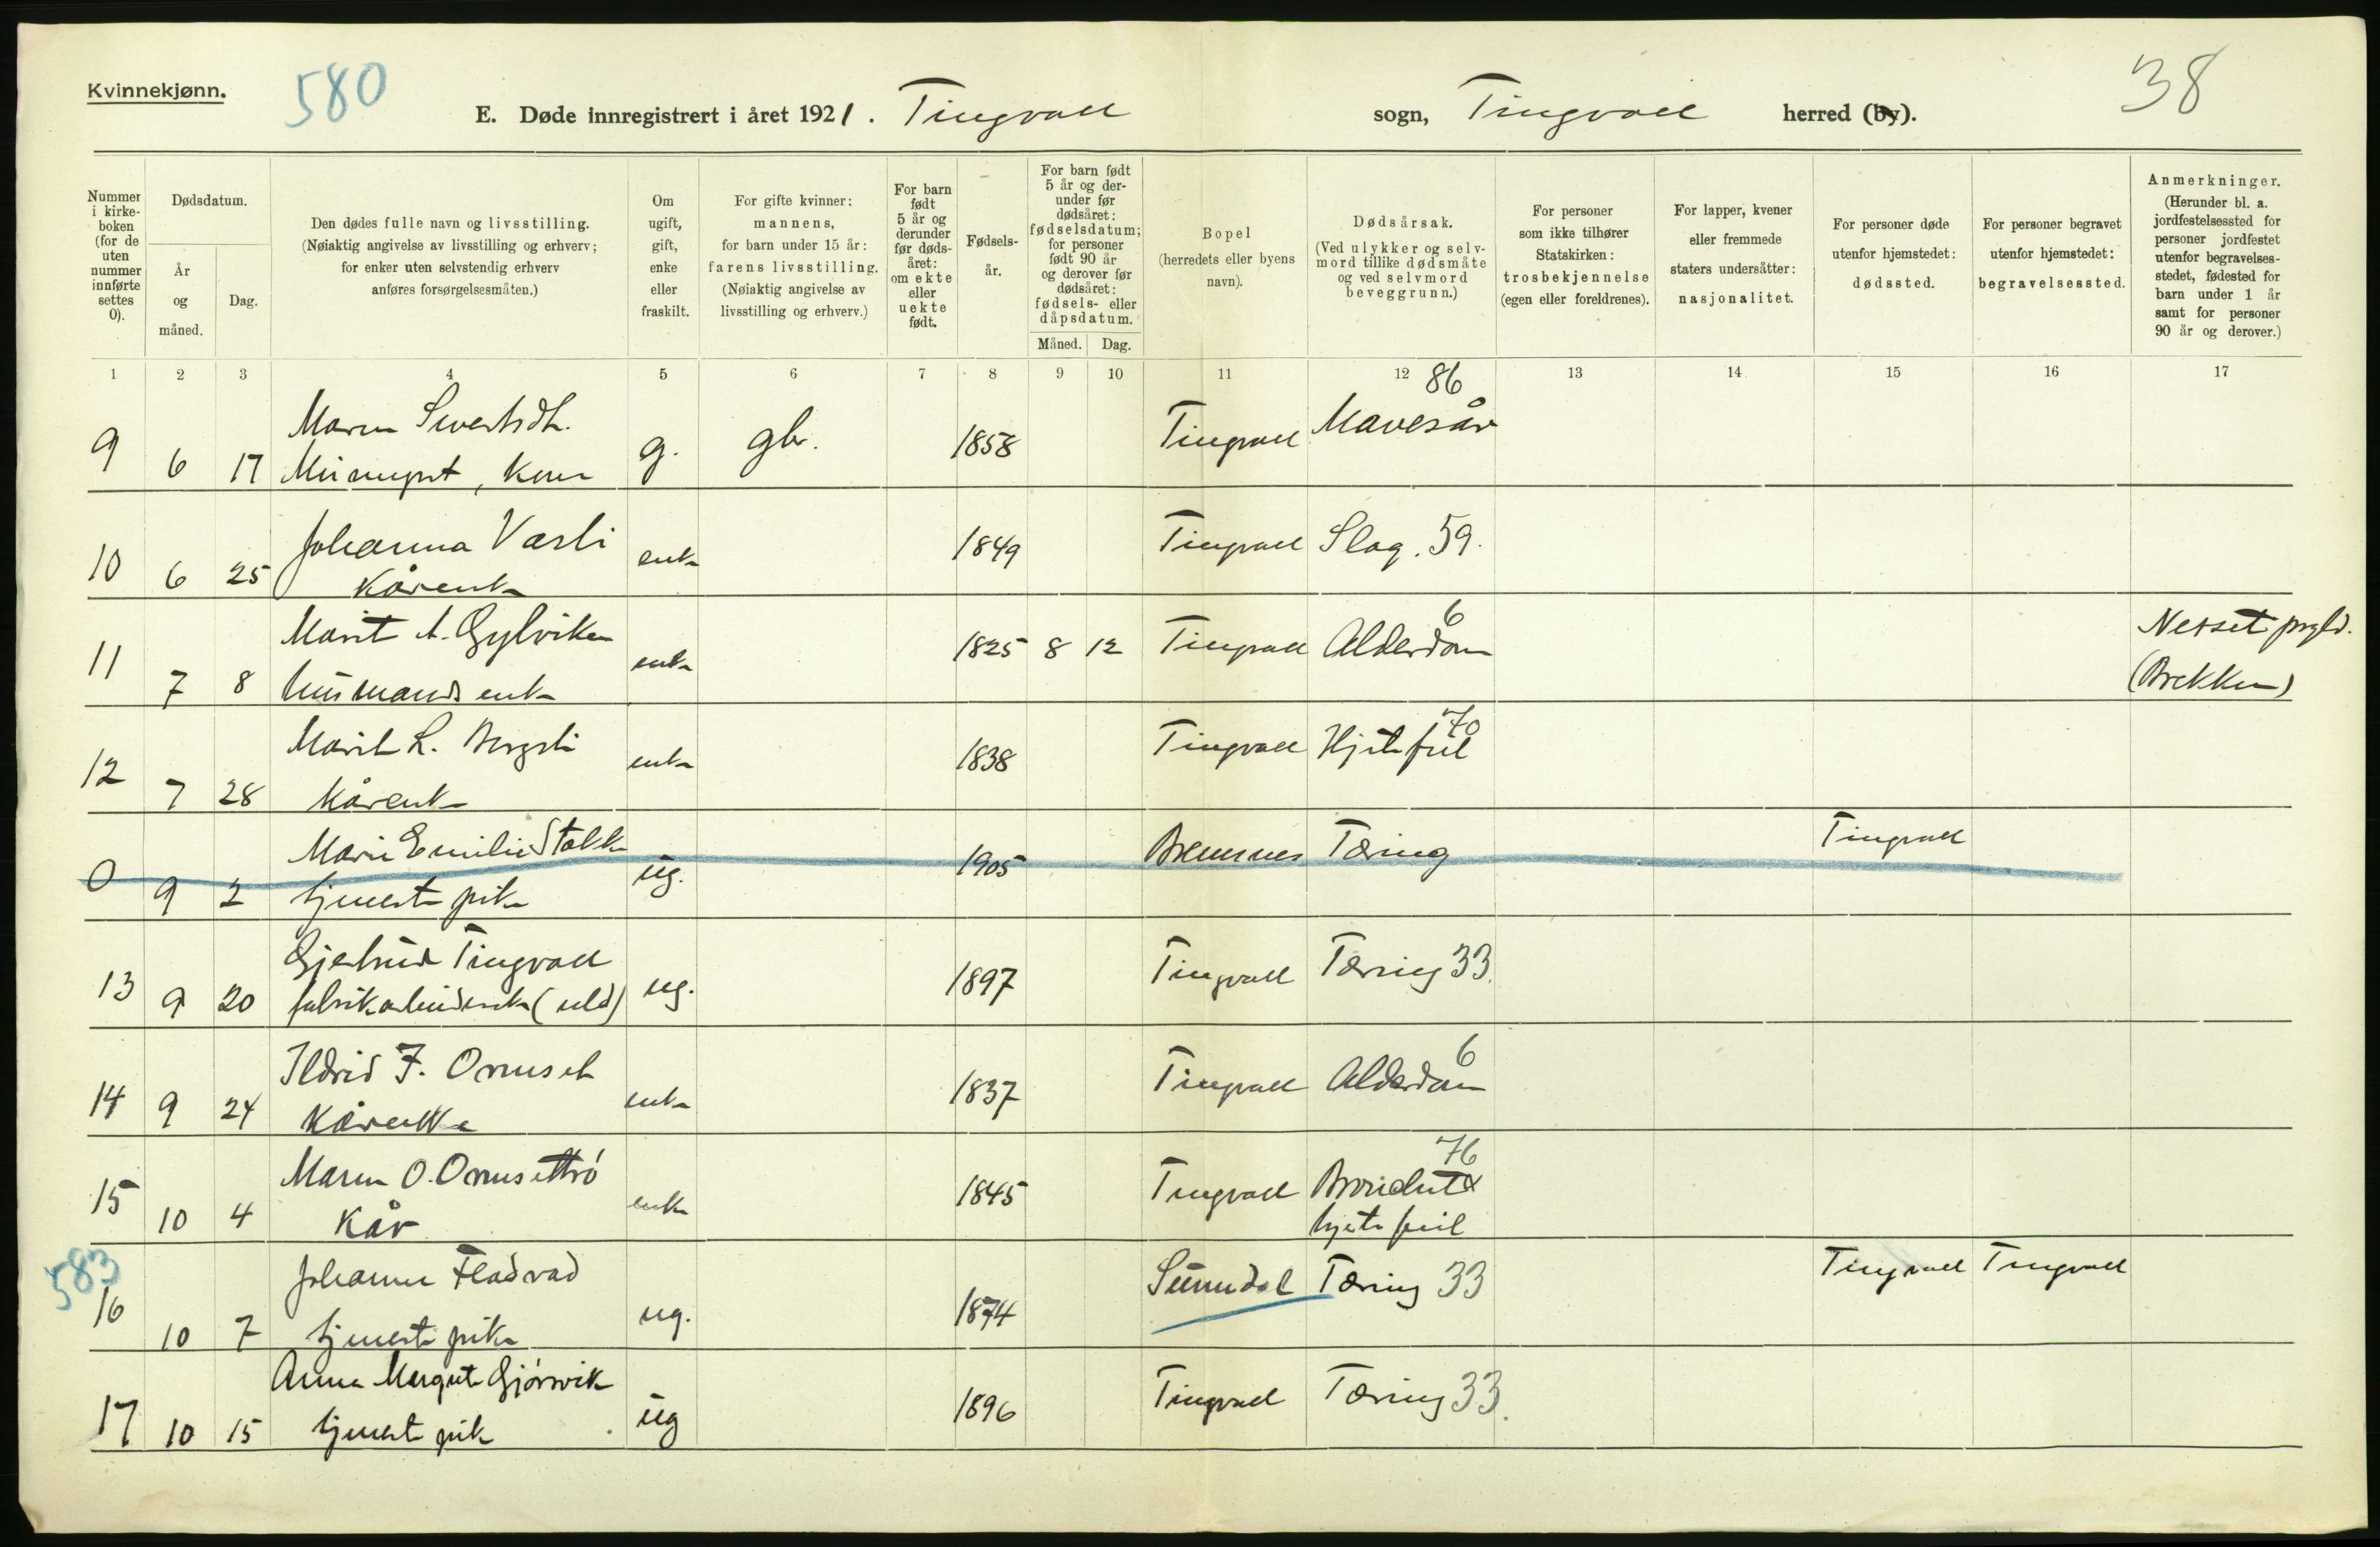 Kvinnekjønn.
580
38
E. Døde innregistrert i året 1921. Tingvoll sogn, Tingvoll herred (by).
Nummer i kirke-boken (for de uten nummer innførte settes 0).
Dødsdatum.
År og måned.
Dag.
Den dødes fulle navn og livsstilling.
(Nøiaktig angivelse av livsstilling og erhverv;
for enker uten selvstendig erhverv
anføres forsørgelsesmåten.)
Om ugift, gift, enke eller fraskilt.
For gifte kvinner:
mannens,
for barn under 15 år:
farens livsstilling.
(Nøiaktig angivelse av
livsstilling og erhverv.)
For barn født 5 år og derunder før døds-året: om ekte eller uekte født.
Fødsels-år.
For barn født 5 år og der-under før dødsåret: fødselsdatum; for personer født 90 år og derover før dødsåret: fødsels- eller dåpsdatum.
Måned. Dag.
Bopel
(herredets eller byens
navn).
Dødsårsak.
(Ved ulykker og selv-
mord tillike dødsmåte
og ved selvmord
beveggrunn.)
For personer
som ikke tilhører
Statskirken:
trosbekjennelse
(egen eller foreldrenes).
For lapper, kvener
eller fremmede
staters undersåtter:
nasjonalitet.
For personer døde
utenfor hjemstedet:
dødssted.
For personer begravet
utenfor hjemstedet:
begravelsessted.
Anmerkninger.
(Herunder bl. a.
jordfestelsessted for
personer jordfestet
utenfor begravelses-
stedet, fødested for
barn under 1 år
samt for personer
90 år og derover.)
1 2 3 4 5 6 7 8 9 10 11 12 13 14 15 16 17
86
Maren Sivertsdt.
9 6 17 g. gbr. 1858 Tingvoll Mavesår
Johanna Vasli
10 6 25 enke 1849 Tingvoll Slag. 59.
Kårenke
6
Marit A. Gylviken Nesset prgld.
11 7 8 enke 1825 8 12 Tingvoll Alderdom
husmandsenke (Brekken)
70
Marit L. Bergsli
12 7 28 enke 1838 Tingvoll Hjertefeil
Kårenke
Marie Emilie Stokke Tingvoll
0 9 2 ug. 1905 Bremsnes Tæring
tjenestepike
Gjertrud Tingvoll
13 9 20 fabrikarbeiderske (uld) ug. 1897 Tingvoll Tæring 33.
6
Ildrid F. Ormset
14 9 24 enke 1837 Tingvoll Alderdom
Kårenke
76
Maren O. Ormsettrø
15 10 4 enke 1845 Tingvoll Bronchit &
Kår hjertefeil
583
Johanne Fladvad
16 10 7 ug. 1874 Sunndal Tæring 33 Tingvoll Tingvoll
tjenestepike
Anna Margrete Gjørvik
17 10 15 ug 1896 Tingvoll Tæring 33.
tjenestepike